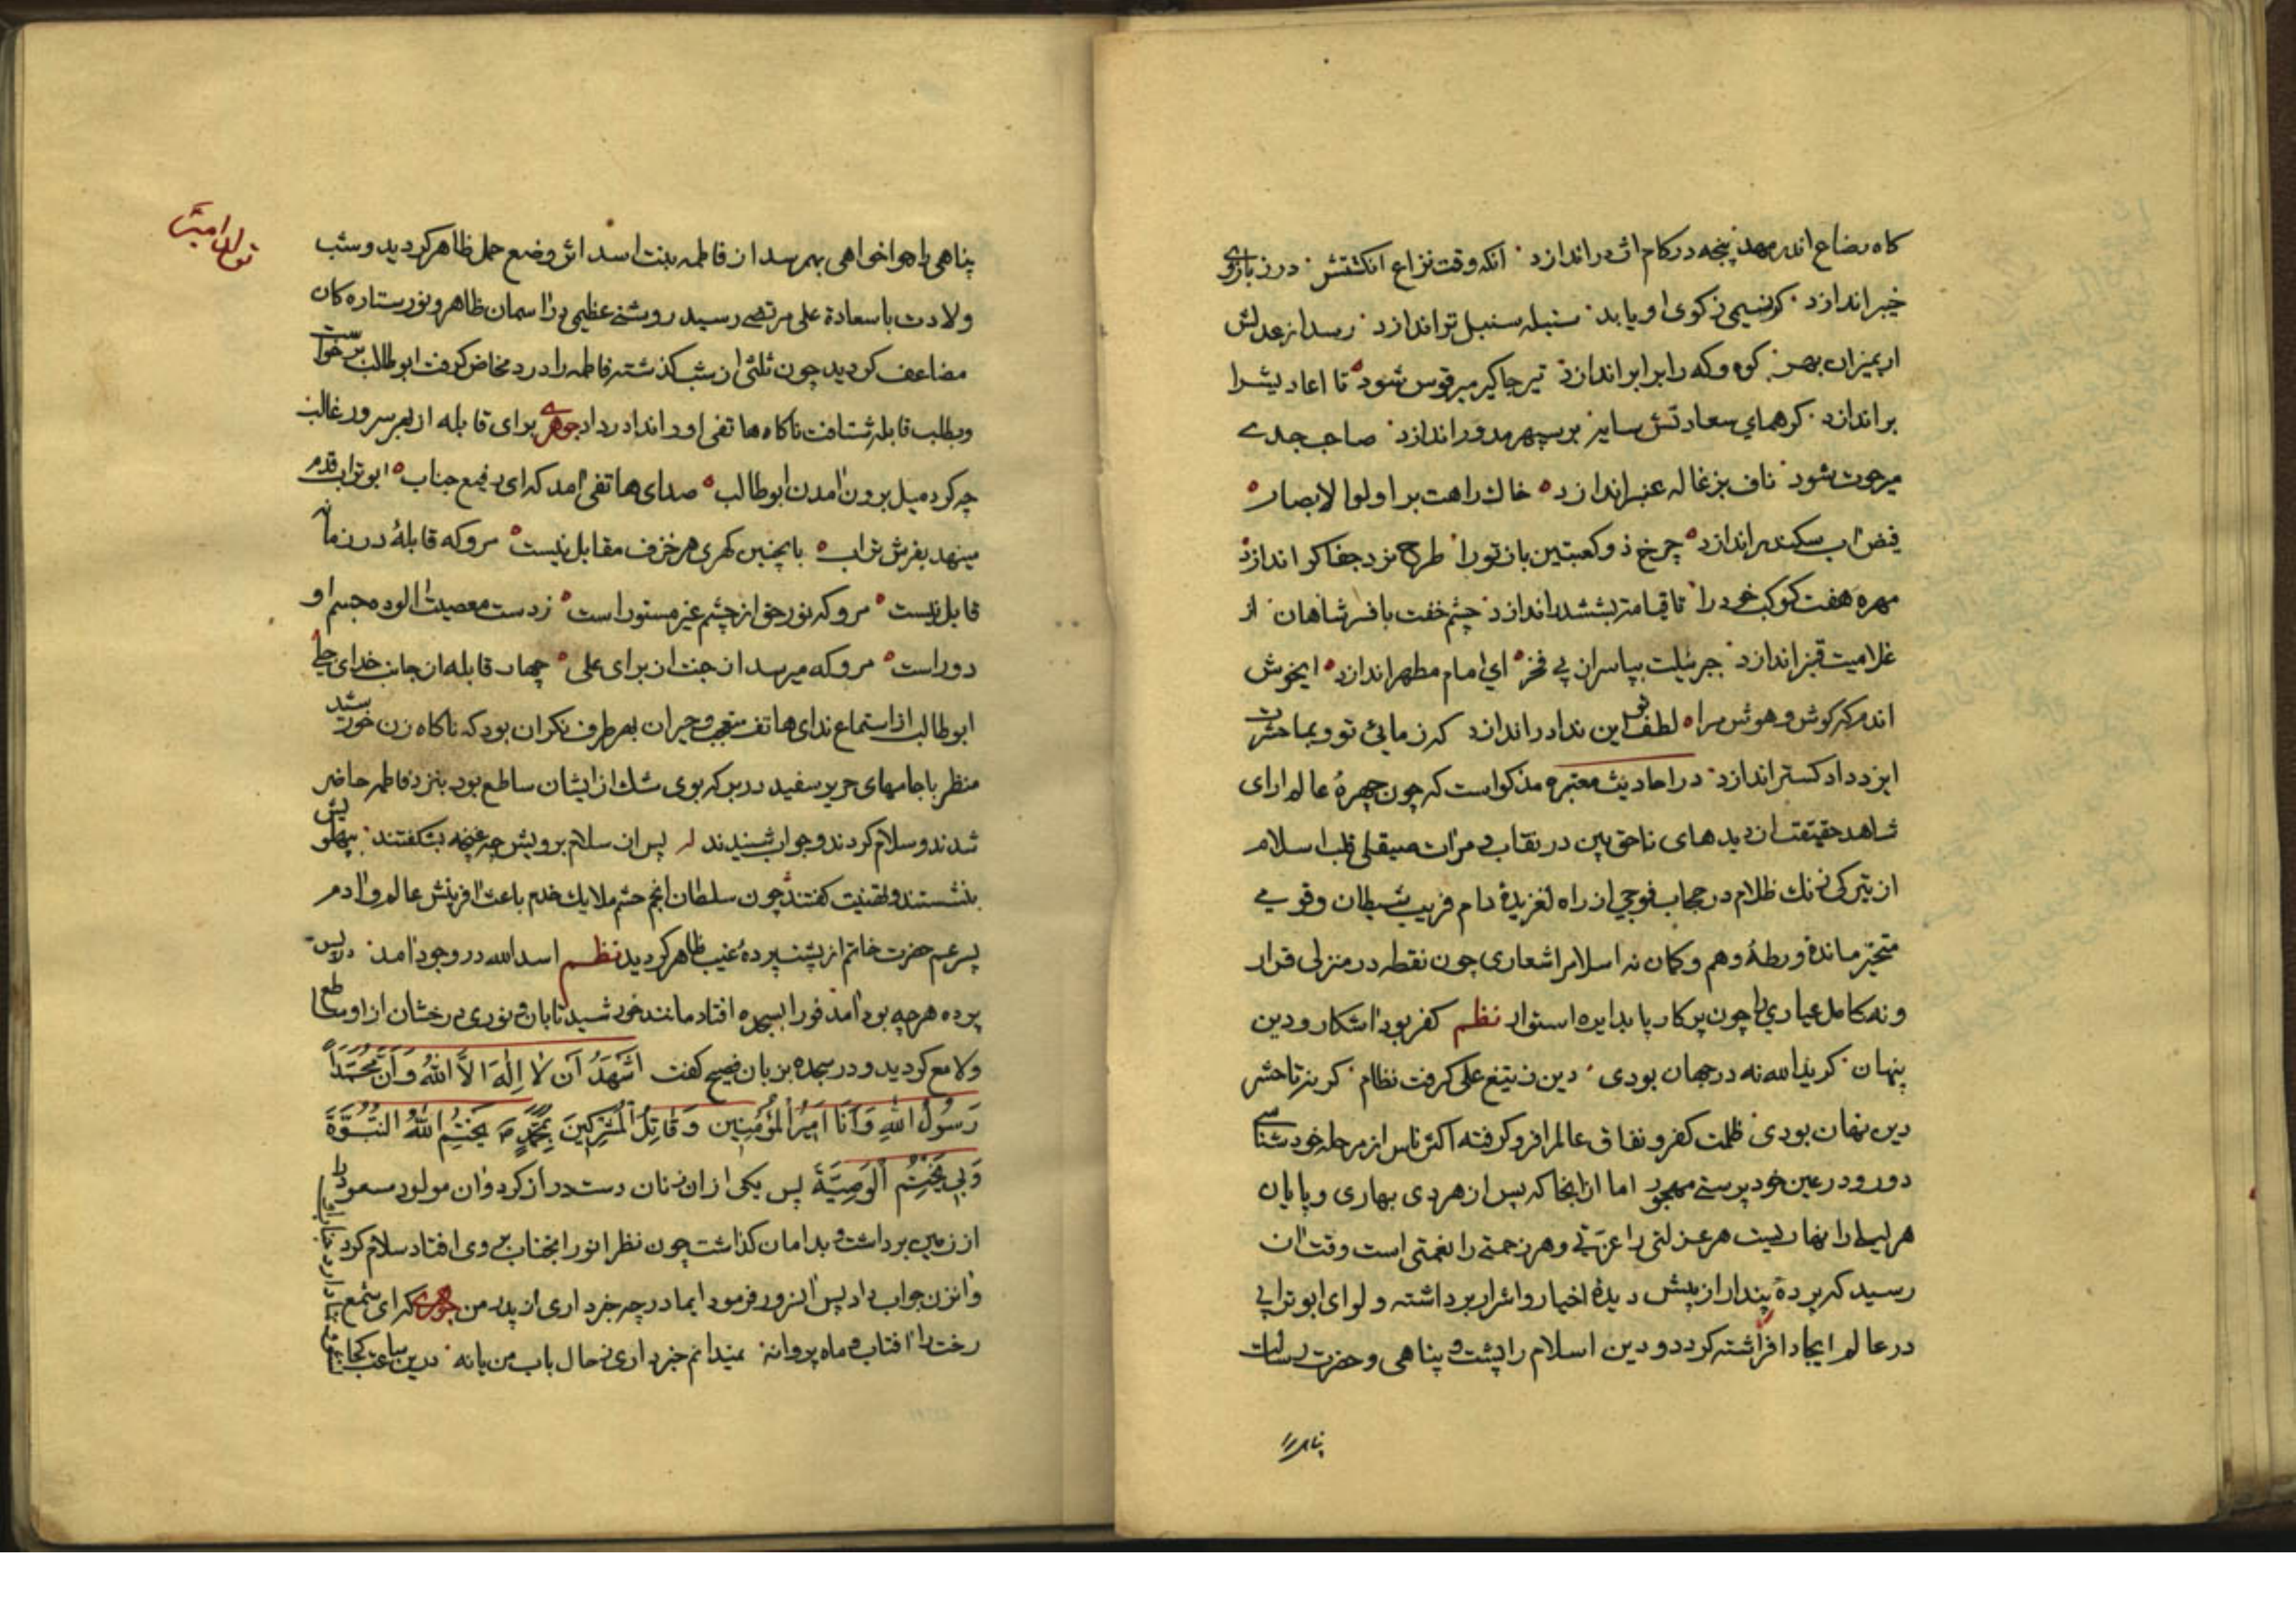 کاه رضاع اندر مهد پنجه در کام اژدر اندازد آنکه وقت نزاع انکشتش درز بازوی
خیبر اندازد کر نسیمی ز کوی او یابد سنبله سنبل تر اندازد رسد از عدلش
ار بمیزان بهر کوه و که را برابر اندازد تیر جاکیر بر قوس شود تا اعادیش را
بر اندازد کر همای سعادتش سایه بر سپهر مدور اندازد صاحب جدی
میر حوت شود ناف بزغاله عنبر اندازد خاك راهت بر اولوا لابصار
فیض آب سکندر اندازد چرخ ذو کعبتین باز تو را طرح نرد جفا کر اندازد
مهره هفت کوکب خود را تا قیامت بششدر اندازد چشم خفت بافسر شاهان از
غلامیت قنبر اندازد جبرئیلت بپاسران پی فخر ای امام مطهر اندازد ایخوش
اندم که کوش و هوش مرا لطف تو این ندا در اندازد که ز مائی تو و بما حشرت
ایزد داد کستر اندازد در احادیث معتبره مذکو است که چون چهرهٔ عالم ارای
شاهد حقیقت از دیدهای ناحق بین در نقاب و مرات صیقلی قلب اسلام
از تیرکی زنك ظلام در حجاب فوجی از راه لغزیدهٔ دام فریب شیطان و قومی
متحیر ماندهٔ ورطهٔ وهم و کمان نه اسلام اشعاری چون نقطه در منزلی قرار
و نه کامل عیاری را چون پرکار پا بدایره استوار نظم کفر بود آشکار و دین
پنهان کر ید الله نه در جهان بودی دین ز تیغ علی کرفت نظام کر نه تا حشر
دین نهان بودی ظلمت کفر و نفاق عالم را فرو کرفته اکثر ناس از مرحله خود شناسی
دور و در عین خود پرستی مهجور اما از انجا که پس از هر دی بهاری و پایان
هر لیلی را نهاریست هر عزلتی را عزتی و هر زحمتی را نعمتی است وقت ان
رسید که پردهٔ پندار از پیش دیدهٔ اخیار و اشرار برداشته و لوای ابو ترابی
در عالم ایجاد افراشته کردد و دین اسلام را پشت و پناهی و حضرت رسالت
پناهی را
تولد امیر
پناهی را هوا خواهی بهم رسد از فاطمه بنت اسد اثر وضع حمل ظاهر کردید و شب
ولادت با سعادة علی مرتضی رسید روشنی عظیمی در آسمان ظاهر و نور ستاره کان
مضاعف کردید چون ثلثی از شب کذشته فاطمه را درد مخاض کرفت ابو طالب بر خواست
و بطلب قابله شتافت ناکاه هاتفی او را ندا در داد جوهری برای قابله از بهر سرور غالب
چه کرد میل برون آمدن ابو طالب صدای هاتفی آمد که ای رفیع جناب ابو تراب قدم
مینهد بفرش تراب با بچنین کهری هر خزف مقابل نیست مرو که قابلهٔ در زمانه
قابل نیست مرو که نور حق از چشم غیر مستور است ز دست معصیت الوده جسم او
دور است مرو که میرسد از جنت از برای علی چهار قابله از جانب خدای جلی
ابو طالب از استماع ندای هاتف متعجب و حیران بهر طرف نکران بود که ناکاه زن خورشید
منظر با جامهای حریر سفید در بر که بوی مشك از ایشان ساطع بود بنزد فاطمه حاضر
شدند و سلام کردند و جواب شنیدند پس از سلام برویش چه غنچه بشکفتند بپهلویش
بنشستند و تهنیت کفتند چون سلطان انجم حشم ملایك خدم باعث آفرینش عالم و آدم
پسر عم حضرت خاتم از پشت پرده غیب ظاهر کردید نظم اسد الله در وجود آمد در پس
پرده هر چه بود آمد فورا بسجده افتاد مانند خورشید تابان و نوری درخشان از او ساطع
و لامع کردید و در سجده بزبان فصیح کفت اَشْهَدُ اَن لا اِلهَ اِلاَّ اللهُ وَ اَنَّ مُحَمَّداً
رَسُولُ اللهِ وَ اَنَا اَمِیرُ الْمُؤْمِنِین وَ قَاتِلُ الْمُشْرِکِینَ بِمُحَمَّدٍ ص یَخْتِمُ اللهُ النُّبُوَّةَ
وَ بِی یَخْتِمُ الْوَصِیَّةَ پس یکی از ان زنان دست دراز کرد و ان مولود مسعود را
از زمین برداشت و بدامان کذاشت چون نظر انور انجناب بر وی افتاد سلام کرد
و انزن جواب داد پس آنسرور فرمود ایمادر چه خبر داری از پدر من جوهری که ای شمع
رخت را آفتاب و ماه پروانه نمیدانم خبر داری ز حال باب من یا نه درین ساعت کجا